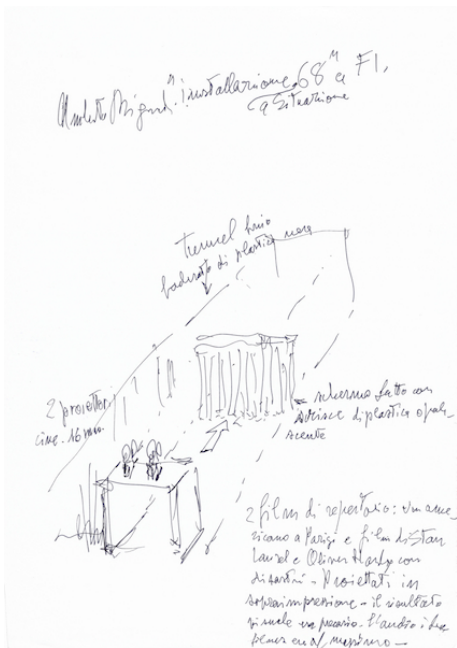 Umberto Bignardi. installazione "68" a FI.
a Situazione
tunnel buio
foderato di plastica nera
2 proiettori
cine. 16 mm.
schermo fatto con
strisce di plastica opale-
scente
2 film di repertorio: Un ame-
ricano a Parigi e film di Stan
Laurel e Oliver Hardy con
disastri - Proiettati in
sovraimpressione - il risultato
visuale
L'audio i due
al massimo -